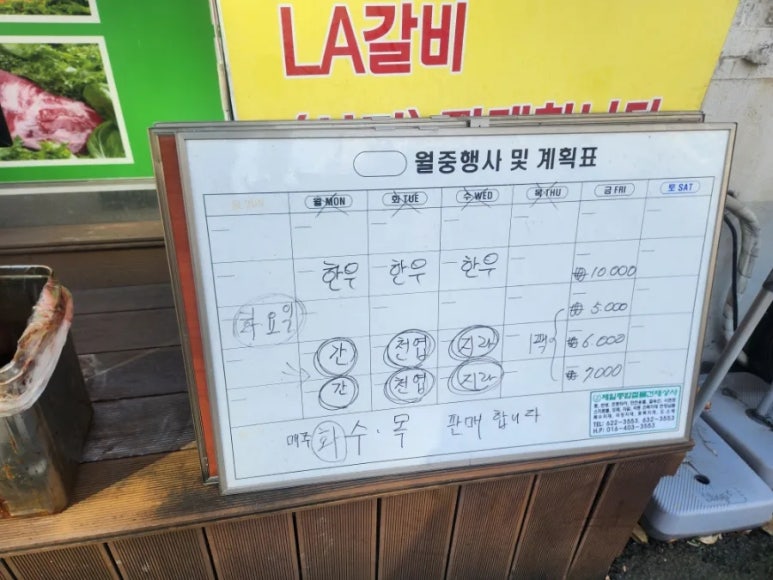 LA갈비
월중행사 및 계획표
월 MON 화 TUE 수 WED 목 THU 금 FRI 토 SAT
한우 한우 한우 ₩10000
화요일 ₩5.000
간 천엽 지라 1팩 ₩6.000
간 천엽 지라 ₩7000
매주 화 수·목 판매합니다
TEL: 622-3553, 632-3553
H.P: 016-403-3553